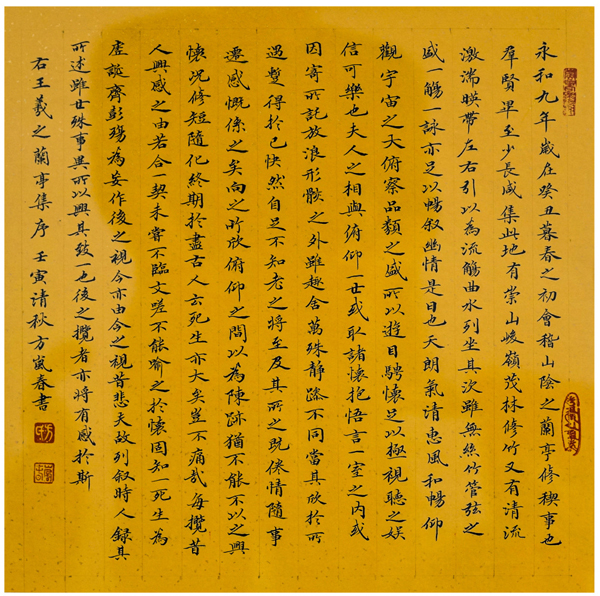 永和九年歲在癸丑暮春之初會稽山陰之蘭亭修稧事也
羣賢畢至少長咸集此地有崇山峻嶺茂林修竹又有清流
激湍暎帶左右引以為流觴曲水列坐其次雖無絲竹管弦之
盛一觴一詠亦足以暢叙幽情是日也天朗氣清惠風和暢仰
觀宇宙之大俯察品類之盛所以遊目騁懷足以極視聽之娛
信可樂也夫人之相與俯仰一世或取諸懷抱悟言一室之內或
因寄所託放浪形骸之外雖趣舍萬殊静躁不同當其欣於所
遇蹔得於己快然自足不知老之將至及其所之既倦情隨事
遷感慨係之矣向之所欣俯仰之間以為陳跡猶不能不以之興
懷況修短隨化終期於盡古人云死生亦大矣豈不痛哉每攬昔
人興感之由若合一契未嘗不臨文嗟不能喻之於懷固知一死生為
虛誕齊彭殤為妄作後之視今亦由今之視昔悲夫故列叙時人錄其
所述雖世殊事異所以興其致一也後之攬者亦將有感於斯
右王羲之蘭亭集序 壬寅清秋方嵐春書